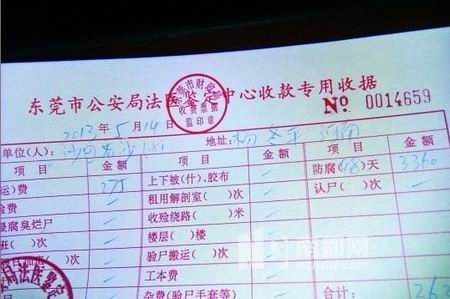 东莞市公安局法医鉴定中心收款专用收据
东莞市财政局
收费票据
监印章
No 0014659
2013年5月14日
单位(人): 地址:
项目 金额 项目 金额 项目 金额
运)费 275 上下被(什)、胶布 防腐(48)天 3360
验费 租用解剖室( )次 认尸( )次
浸腐臭烂尸 收殓绕路( )米
班( )次 楼层( )楼
验尸搬运( )次
工本费
杂费(验尸手套等) 合计:
南都网